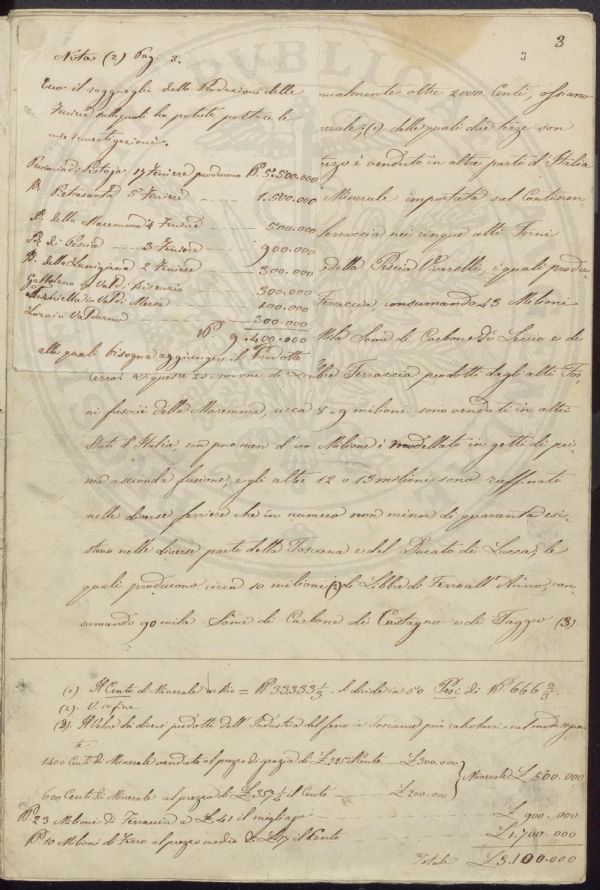 3
3
Nota (2) Pag. 3.
Ecco il ragguaglio della Produzione delle
Ferriere sulle quali ho potuto portare le
mie investigazioni.
Provincia di Pistoja. 17 Ferriere producono ℔ 5.500.000
Pa. Pietrasanta 5 Ferriere 1.500.000
Pa. della Maremma 4 Ferriere 500.000
Pa. di Pescia 3 Ferriere 900.000
Pa. della Lunigiana 2 Ferriere 300.000
Gattolana in Val di 300.000
in Val di Mersa 200.000
Loro in Valdarno 300.000
℔ 9.400.000
alle quali bisogna aggiungere il Prodotto
nualmente oltre 2000 Centi, ossiano
nerale; (1) delle quali due terze son
terzo è venduto in altre parti d'Italia
Minerale importata sul Continen-
ferraccia nei cinque alti Forni
della Pescia Vivarelli, i quali produ-
Ferraccia, consumando 43 Milioni
Mila Some di Carbone di Leccio e di
Cerro. Di queste 23 milioni di Libbre Ferraccia prodotti dagli alti For-
ni fusorii della Maremma, circa 8 o 9 milioni sono venduti in altri
Stati d'Italia, un poco men d'un Milione è modellato in getti di pri-
ma o seconda fusione, e gli altri 12 o 13 milioni sono raffinati
nelle diverse ferriere che in numero non minor di quaranta esi-
stono nelle diverse parti della Toscana e del Ducato di Lucca, le
quali producono circa 10 milioni (2) di Libbre di Ferro all'Anno, con-
sumando 90 mila Some di Carbone di Castagno e di Faggio (3)
(1). Il Cento di Minerale = ℔ 33333 1/3. Si divide in 50 Pesi di ℔ 666 2/3.
(2). V. in fine.
(3). Il Valore dei diversi prodotti dell'Industria del ferro in Toscana può calcolarsi nel modo seguen-
te
1400 Centi di Minerale venduto al prezzo di grazia di £ il Cento £ 300.000
Minerale £ 500.000
600 Centi di Minerale al prezzo di £ 333 1/3 il Cento £ 200.000
℔ 23 Milione di Ferraccia a £ 41 il migliajo £ 900.000
℔ 10 Milioni di Ferro al prezzo medio di £ 17 il Cento £ 1.700.000
Totale £ 3.100.000